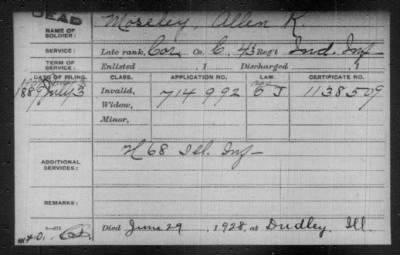 DEAD
NAME OF SOLDIER: Moseley, Allen K.
SERVICE: Late rank, Cor Co. C, 43 Reg't Ind. Inf
TERM OF SERVICE: Enlisted 1 Discharged 1
DATE OF FILING. CLASS. APPLICATION NO. LAW. CERTIFICATE NO.
1889 July 3 Invalid, 714 992 G J 1138509
Widow,
Minor,
ADDITIONAL SERVICES: H 68 Ill. Inf
REMARKS:
Died June 29, 1928, at Dudley, Ill.